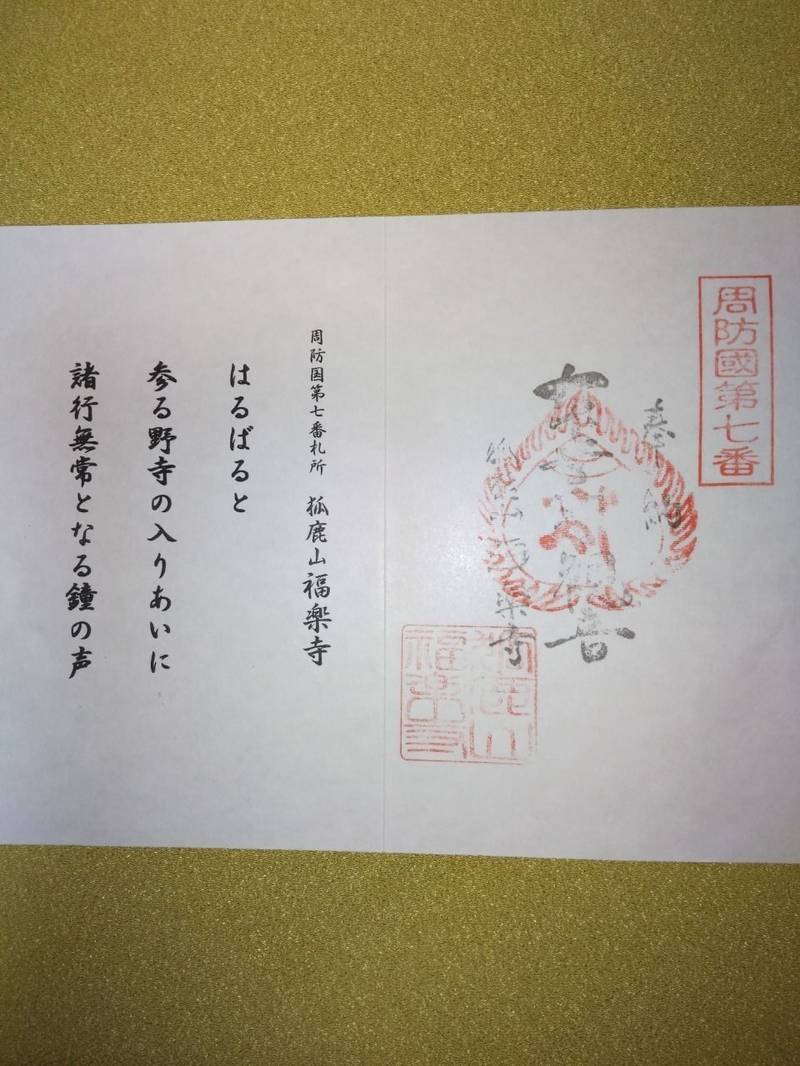 周防國第七番
奉納
狐鹿山福楽寺
狐鹿山
福楽寺
周防国第七番札所 狐鹿山福楽寺
はるばると
参る野寺の入りあいに
諸行無常となる鐘の声